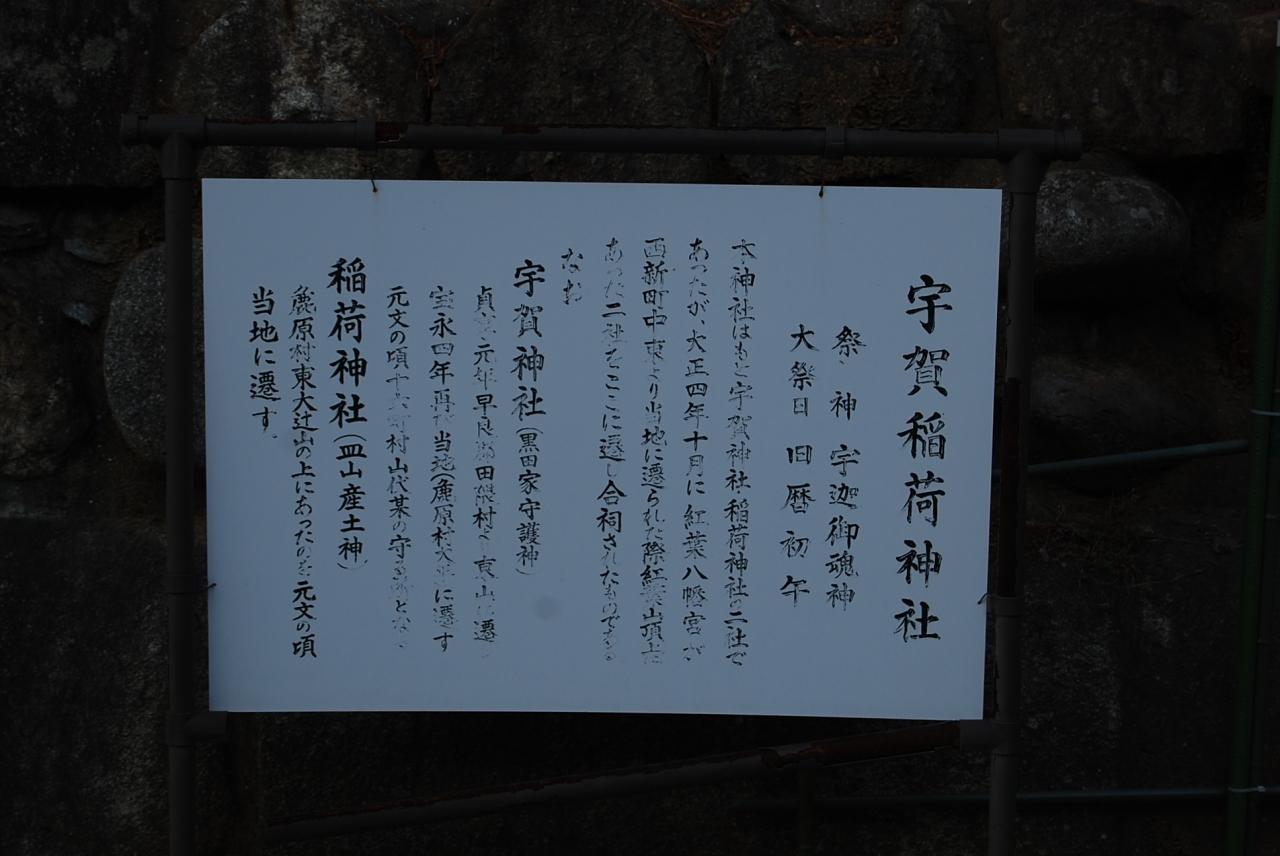 宇賀稲荷神社
祭神 宇迦御魂神
大祭日 旧暦初午
本神社はもと宇賀神社稲荷神社の二社で
あったが、大正四年十月に紅葉八幡宮が
西新町中東より当地に遷られた際紅葉山頂上に
あった二社をここに遷し合祠されたものである
なお
宇賀神社(黒田家守護神)
貞 元年早良郡田隈村より東山に遷
宝永四年再び当地(麁原村大 に遷す
元文の頃 村山代某の守る所とな
稲荷神社(皿山産土神)
麁原村東大辻山の上にあったのを元文の頃
当地に遷す。